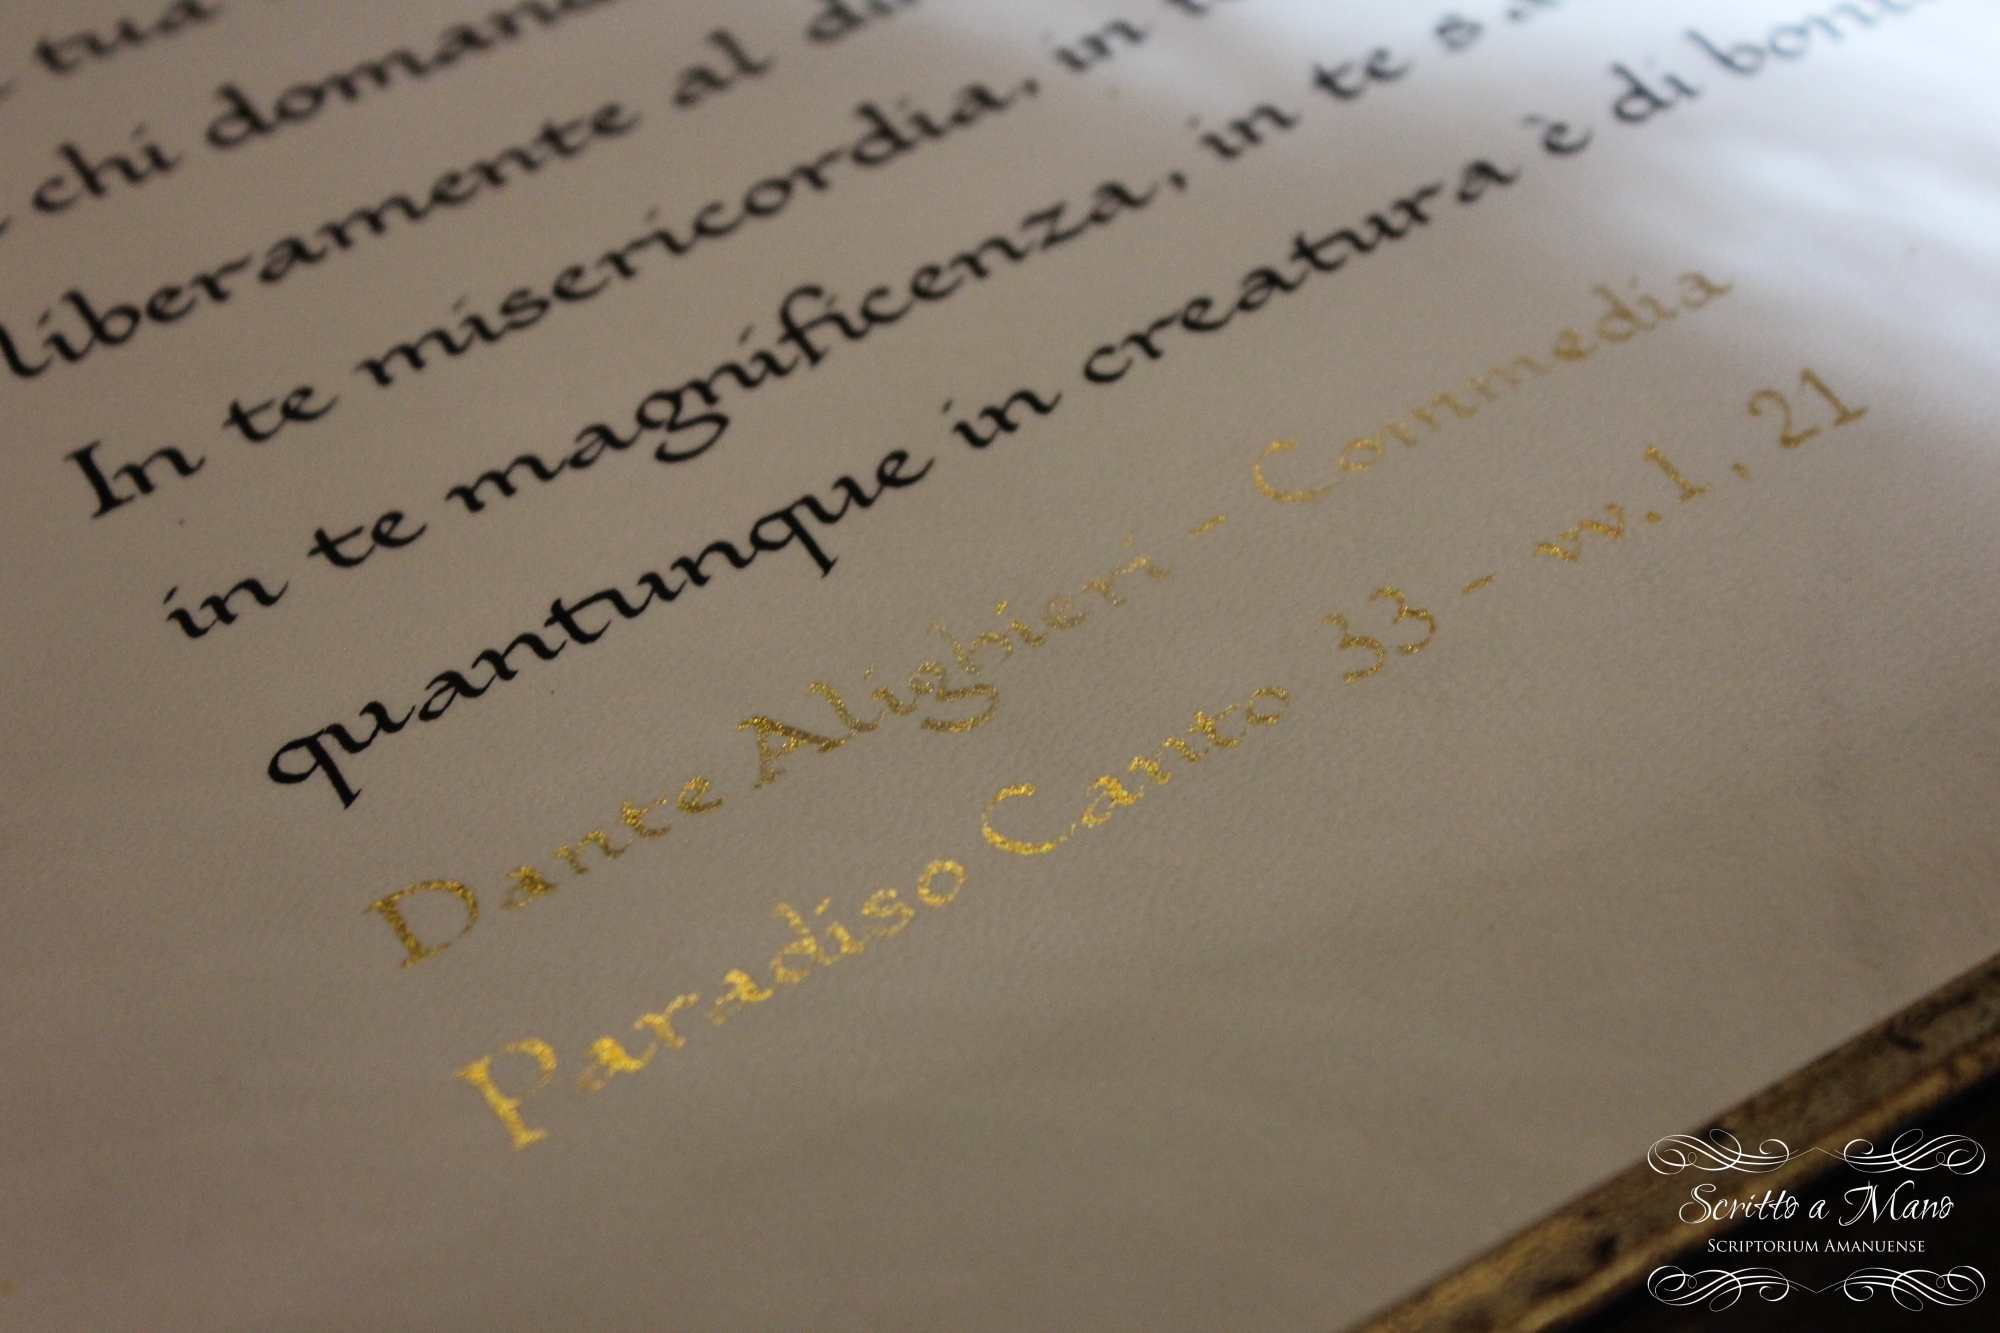 tua
chi domand
liberamente al di
In te misericordia, in
in te magnificenza, in te s'a
quantunque in creatura è di bont
Dante Alighieri - Commedia
Paradiso Canto 33 - vv.1, 21
Scritto a Mano
Scriptorium Amanuense